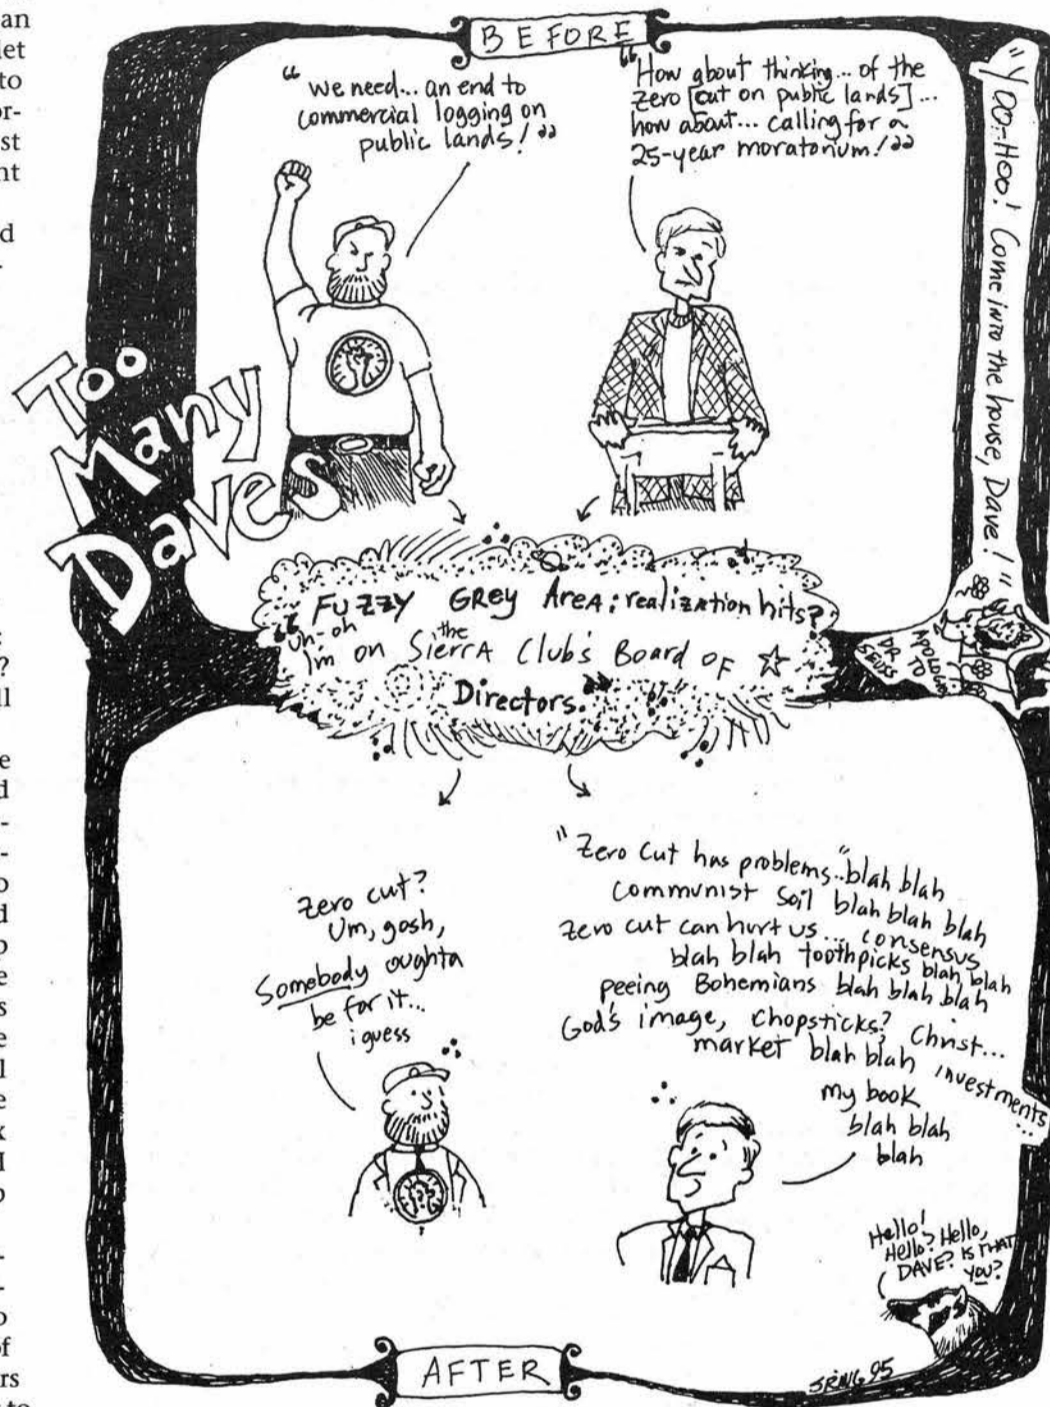 an
let
to
or-
st
nt
d
-
:
?
ll
e
d
-
-
o
d
o
e
s
e
l
e
k
I
o
-
-
o
of
rs
to
BEFORE
"We need... an end to
commercial logging on
public lands!"
"How about thinking... of the
zero [cut on public lands]...
how about... calling for a
25-year moratorium!"
"YOO-HOO! Come into the house, Dave!"
Too
Many
Daves
APOLOGIES
TO
DR.
SEUSS
FUZZY GREY AREA: realization hits?
"Uh-oh
I'm on the Sierra Club's Board of
Directors."
Zero cut?
Um, gosh,
Somebody oughta
be for it...
i guess
"Zero cut has problems..." blah blah
communist soil blah blah blah
zero cut can hurt us... consensus
blah blah toothpicks blah blah
peeing Bohemians blah blah blah
God's image, chopsticks? Christ...
market blah blah investments...
my book
blah blah
blah
Hello!
Hello? Hello,
DAVE? IS THAT
YOU?
AFTER
95